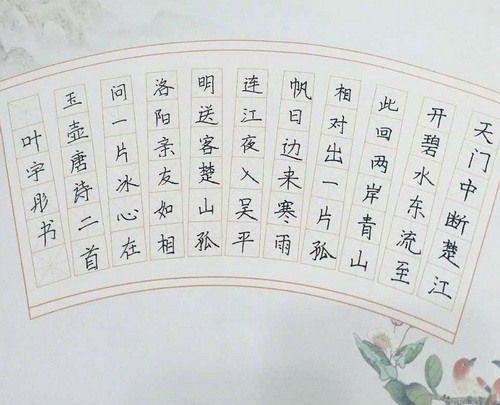 天门中断楚江
开碧水东流至
此回两岸青山
相对出一片孤
帆日边来寒雨
连江夜入吴平
明送客楚山孤
洛阳亲友如相
问一片冰心在
玉壶唐诗二首
叶宇彤书